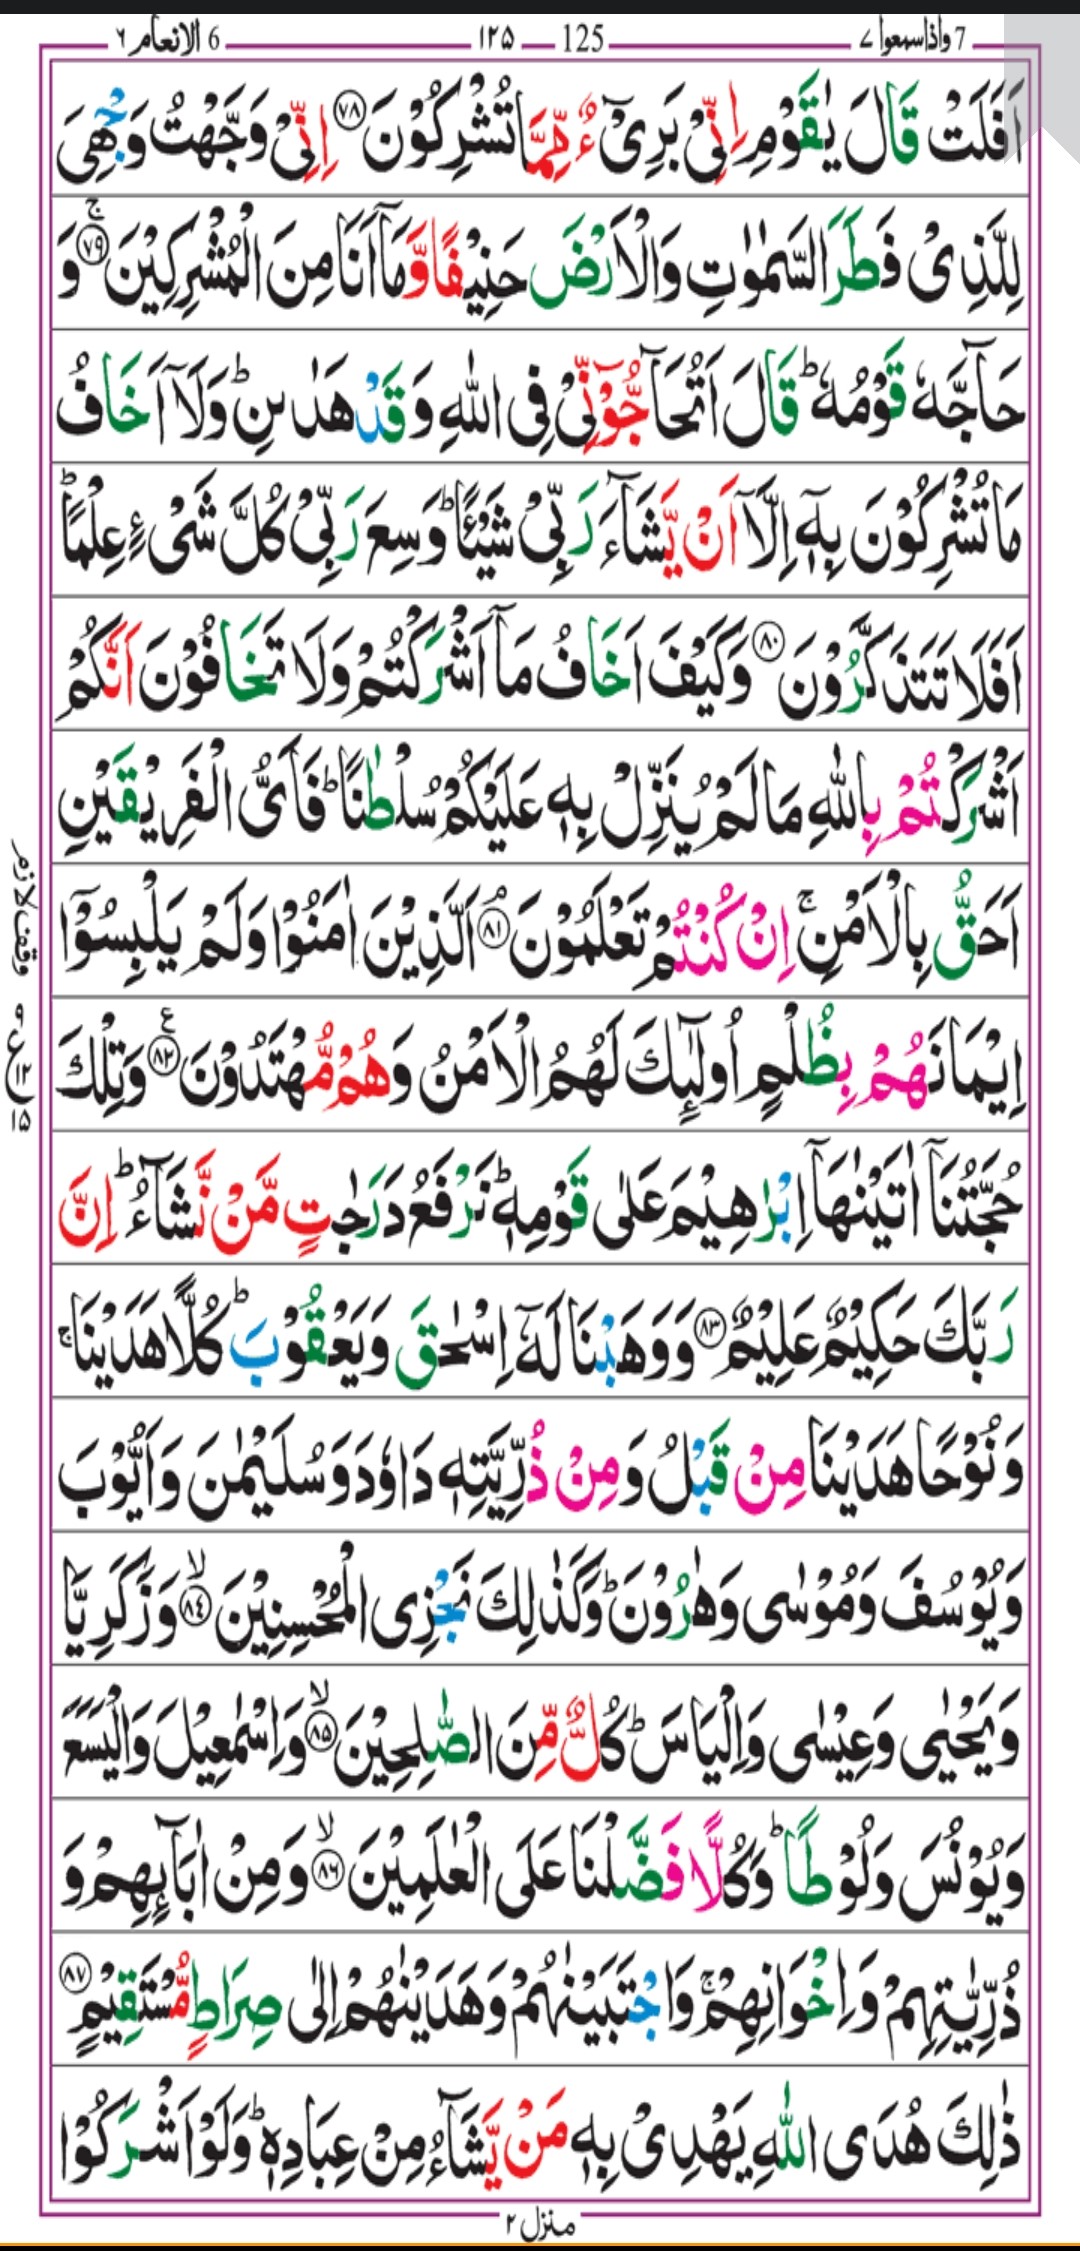 7 واذاسمعوا ٧ 125 ١٢٥ 6 الانعام ٦
اَفَلَتْ قَالَ يٰقَوْمِ اِنِّىْ بَرِىْٓءٌ مِّمَّا تُشْرِكُوْنَ ﴿٧٨﴾ اِنِّىْ وَجَّهْتُ وَجْهِىَ
لِلَّذِىْ فَطَرَ السَّمٰوٰتِ وَالْاَرْضَ حَنِيْفًا وَّمَاۤ اَنَا مِنَ الْمُشْرِكِيْنَ ﴿٧٩﴾ۚ وَ
حَآجَّهٗ قَوْمُهٗ ؕ قَالَ اَتُحَآجُّوْٓنِّىْ فِى اللّٰهِ وَقَدْ هَدٰٮنِ ؕ وَلَاۤ اَخَافُ
مَا تُشْرِكُوْنَ بِهٖۤ اِلَّاۤ اَنْ يَّشَآءَ رَبِّىْ شَيْئًا ؕ وَسِعَ رَبِّىْ كُلَّ شَىْءٍ عِلْمًا ؕ
اَفَلَا تَتَذَكَّرُوْنَ ﴿٨٠﴾ وَكَيْفَ اَخَافُ مَاۤ اَشْرَكْتُمْ وَلَا تَخَافُوْنَ اَنَّكُمْ
اَشْرَكْتُمْ بِاللّٰهِ مَا لَمْ يُنَزِّلْ بِهٖ عَلَيْكُمْ سُلْطٰنًا ؕ فَاَىُّ الْفَرِيْقَيْنِ
اَحَقُّ بِالْاَمْنِ ۚ اِنْ كُنْتُمْ تَعْلَمُوْنَ ﴿٨١﴾ۘ اَلَّذِيْنَ اٰمَنُوْا وَلَمْ يَلْبِسُوْۤا
وقف لازم
اِيْمَانَهُمْ بِظُلْمٍ اُولٰٓئِكَ لَهُمُ الْاَمْنُ وَهُمْ مُّهْتَدُوْنَ ﴿٨٢﴾ وَتِلْكَ
٩ ع ١٢ ١٥
حُجَّتُنَاۤ اٰتَيْنٰهَاۤ اِبْرٰهِيْمَ عَلٰى قَوْمِهٖ ؕ نَرْفَعُ دَرَجٰتٍ مَّنْ نَّشَآءُ ؕ اِنَّ
رَبَّكَ حَكِيْمٌ عَلِيْمٌ ﴿٨٣﴾ وَوَهَبْنَا لَهٗۤ اِسْحٰقَ وَيَعْقُوْبَ ؕ كُلًّا هَدَيْنَا ۚ
وَنُوْحًا هَدَيْنَا مِنْ قَبْلُ وَمِنْ ذُرِّيَّتِهٖ دَاوٗدَ وَسُلَيْمٰنَ وَاَيُّوْبَ
وَيُوْسُفَ وَمُوْسٰى وَهٰرُوْنَ ؕ وَكَذٰلِكَ نَجْزِى الْمُحْسِنِيْنَ ﴿٨٤﴾ۙ وَزَكَرِيَّا
وَيَحْيٰى وَعِيْسٰى وَاِلْيَاسَ ؕ كُلٌّ مِّنَ الصّٰلِحِيْنَ ﴿٨٥﴾ۙ وَاِسْمٰعِيْلَ وَالْيَسَعَ
وَيُوْنُسَ وَلُوْطًا ؕ وَكُلًّا فَضَّلْنَا عَلَى الْعٰلَمِيْنَ ﴿٨٦﴾ۙ وَمِنْ اٰبَآئِهِمْ وَ
ذُرِّيّٰتِهِمْ وَاِخْوَانِهِمْ ۚ وَاجْتَبَيْنٰهُمْ وَهَدَيْنٰهُمْ اِلٰى صِرَاطٍ مُّسْتَقِيْمٍ ﴿٨٧﴾
ذٰلِكَ هُدَى اللّٰهِ يَهْدِىْ بِهٖ مَنْ يَّشَآءُ مِنْ عِبَادِهٖ ؕ وَلَوْ اَشْرَكُوْا
منزل ٢